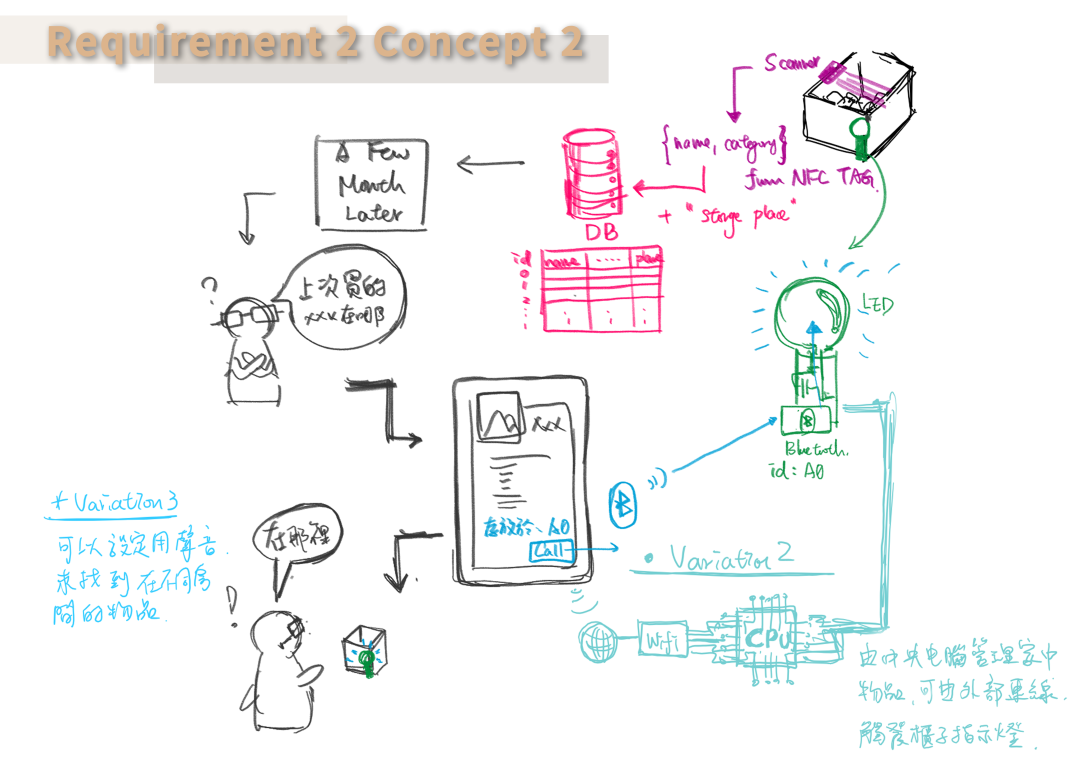 Requirement 2 Concept 2
Scanner
{name, category}
from NFC TAG
+ "storge place"
DB
id name .... place
0
1
2
A Few
Month
Later
?
上次買的
xxx在哪
LED
Bluetooth.
id: A0
xxx
存放於、A0
Call
* Variation 3
可以設定用聲音
來找到在不同房
間的物品.
在那裡
!
• Variation 2
Wifi
CPU
由中央电腦管理家中
物品,可由外部連線.
觸發櫃子指示燈.